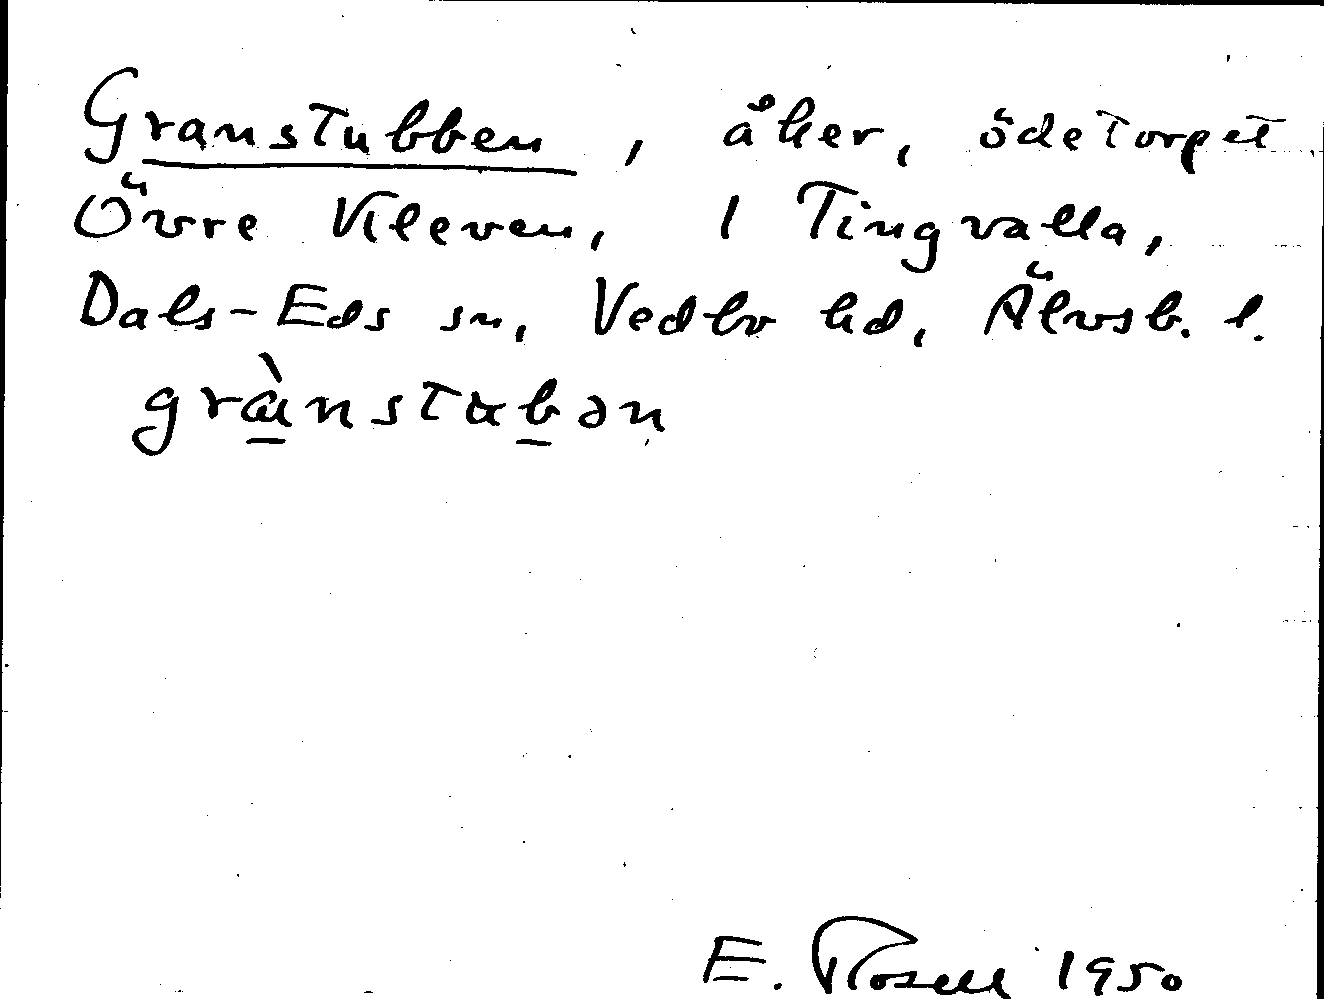 Granstubben, åker, ödetorpet
Övre Kleven, 1 Tingvalla,
Dals-Eds sn, Vedbo hd, Älvsb. l.
grànstubən
E. Rosell 1950